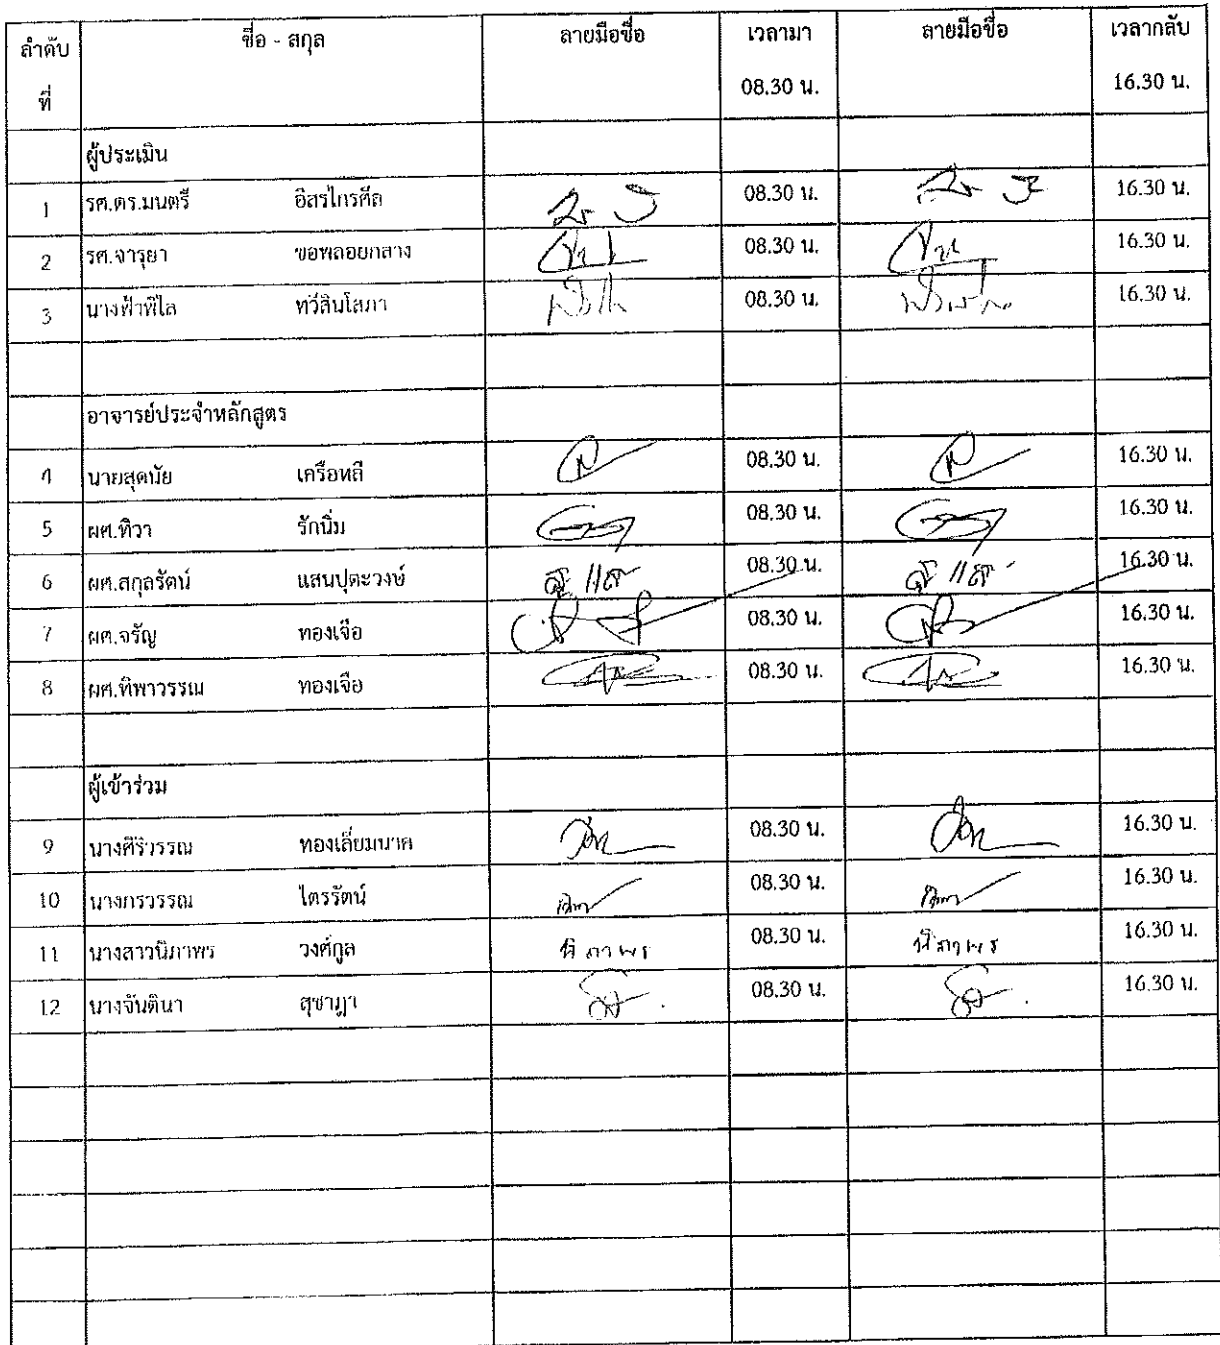 ลำดับ ชื่อ - สกุล ลายมือชื่อ เวลามา ลายมือชื่อ เวลากลับ
ที่ 08.30 น. 16.30 น.
ผู้ประเมิน
1 รศ.ดร.มนตรี อิสรไกรศีล 08.30 น. 16.30 น.
2 รศ.จารุยา ขอพลอยกลาง 08.30 น. 16.30 น.
3 นางฟ้าพิไล ทวีสินโสภา 08.30 น. 16.30 น.
อาจารย์ประจำหลักสูตร
4 นายสุดนัย เครือหลี 08.30 น. 16.30 น.
5 ผศ.ทิวา รักนิ่ม 08.30 น. 16.30 น.
6 ผศ.สกุลรัตน์ แสนปุตะวงษ์ 08.30 น. 16.30 น.
7 ผศ.จรัญ ทองเจือ 08.30 น. 16.30 น.
8 ผศ.ทิพาวรรณ ทองเจือ 08.30 น. 16.30 น.
ผู้เข้าร่วม
9 นางศิริวรรณ ทองเลี่ยมนาค 08.30 น. 16.30 น.
10 นางกรวรรณ ไตรรัตน์ 08.30 น. 16.30 น.
11 นางสาวนิภาพร วงศ์กูล นิภาพร 08.30 น. นิภาพร 16.30 น.
12 นางจันตินา สุชาฎา 08.30 น. 16.30 น.